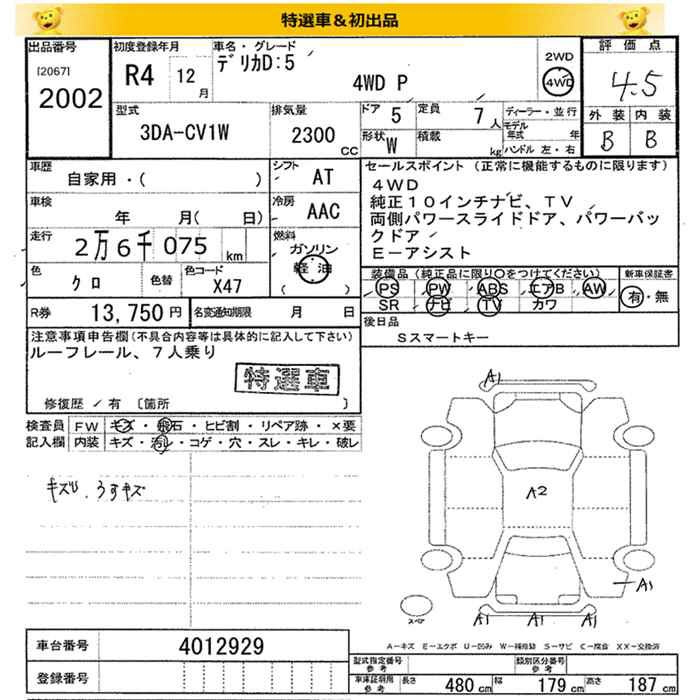 特選車＆初出品
出品番号
[2067]
2002
初度登録年月
R4 12月
車名・グレード
デリカD:5
4WD P
2WD
4WD
評価点
4.5
外装 内装
B B
型式
3DA-CV1W
排気量
2300 CC
ドア 5
定員 7人
形状 W
積載 kg
ディーラー・並行
モデル年式 年
ハンドル 左・右
車歴
自家用・( )
シフト AT
車検
年 月( 日)
冷房 AAC
走行
2万6千075 km
燃料
ガソリン
軽油
( )
色
クロ
色替
色コード
X47
R券 13,750円
名変通知期限 月 日
セールスポイント (正常に機能するものに限ります)
4WD
純正10インチナビ、TV
両側パワースライドドア、パワーバックドア
E-アシスト
装備品 (純正品に限り○をつけてください)
PS PW ABS エアB AW
SR ナビ TV カワ
新車保証書
有・無
後日品
Sスマートキー
注意事項申告欄(不具合内容等は具体的に記入して下さい)
ルーフレール、7人乗り
特選車
修復歴 / 有 [箇所 ]
検査員記入欄
FW キズ・飛石・ヒビ割・リペア跡・×要
内装 キズ・汚レ・コゲ・穴・スレ・キレ・破レ
キズリ、うすキズ
A1
A2
A1
A1 A1 A1
スペア
A-キズ E-エクボ U-凹み W-補修跡 S-サビ C-腐食 XX-交換済
車台番号 4012929
登録番号
型式指定番号 参考
類別区分番号 参考
車庫証明用 参考
長さ 480 cm 幅 179 cm 高さ 187 cm